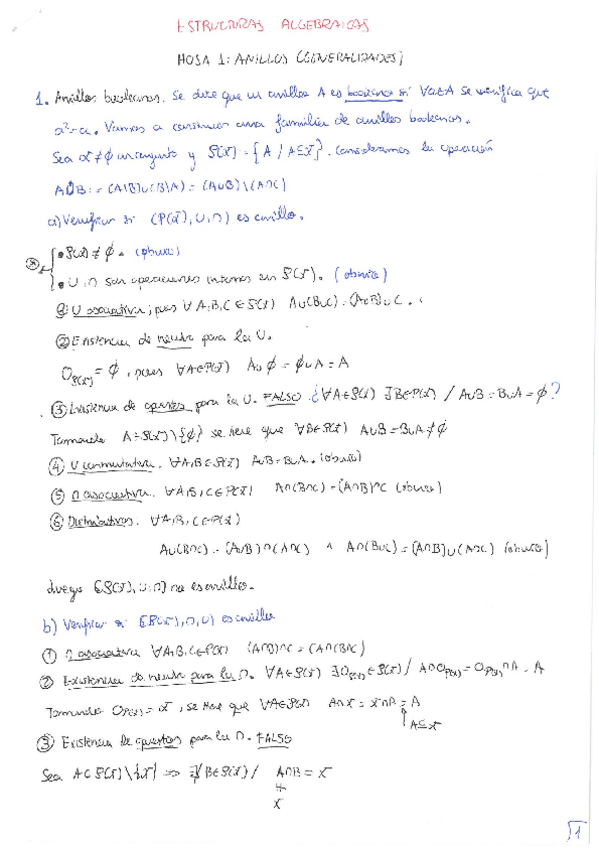 ESTRUCTURAS ALGEBRAICAS
HOJA 1: ANILLOS (GENERALIDADES)
1. Anillos booleanos. Se dice que un anillo A es booleano si ∀a∈A se verifica que
a²=a. Vamos a construir una familia de anillos booleanos.
Sea X≠∅ un conjunto y P(X) = {A / A⊆X}. Consideramos la operación
AΔB := (A\B)∪(B\A) = (A∪B)\(A∩B)
a) Verificar si (P(X),∪,∩) es anillo.
• P(X) ≠ ∅. (obvio)
• ∪,∩ son operaciones internas en P(X). (obvio)
① ∪ asociativa, pues ∀A,B,C∈P(X) A∪(B∪C) = (A∪B)∪C.
② Existencia de neutro para la ∪.
O_P(X) = ∅, pues ∀A∈P(X) A∪∅ = ∅∪A = A
③ Existencia de opuestos para la ∪. FALSO ¿∀A∈P(X) ∃B∈P(X) / A∪B = B∪A = ∅?
Tomando A∈P(X)\{∅} se tiene que ∀B∈P(X) A∪B = B∪A ≠ ∅
④ ∪ conmutativa. ∀A,B∈P(X) A∪B = B∪A. (obvio)
⑤ ∩ asociativa. ∀A,B,C∈P(X) A∩(B∩C) = (A∩B)∩C (obvio)
⑥ Distributivas. ∀A,B,C∈P(X)
A∪(B∩C) = (A∪B)∩(A∪C) ∧ A∩(B∪C) = (A∩B)∪(A∩C) (obvio)
Luego (P(X),∪,∩) no es anillo.
b) Verificar si (P(X),∩,∪) es anillo
① ∩ asociativa ∀A,B,C∈P(X) (A∩B)∩C = (A∩(B∩C)
② Existencia de neutro para la ∩. ∀A∈P(X) ∃O_P(X)∈P(X) / A∩O_P(X) = O_P(X)∩A = A
Tomando O_P(X) = X, se tiene que ∀A∈P(X) A∩X = X∩A = A
↑ A⊆X
③ Existencia de opuestos para la ∩. FALSO
Sea A∈P(X)\{X} ⟹ ∄B∈P(X) / A∩B = X
≠
X
1